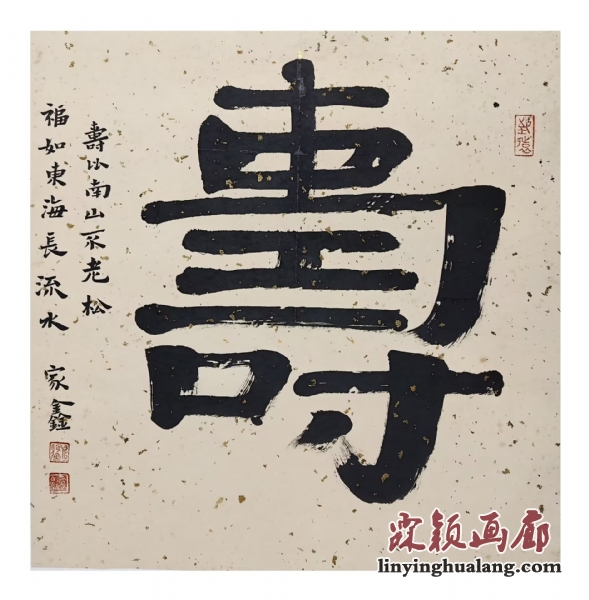 壽
壽比南山不老松
福如東海長流水
家鑫
霖颖画廊
linyinghualang.com